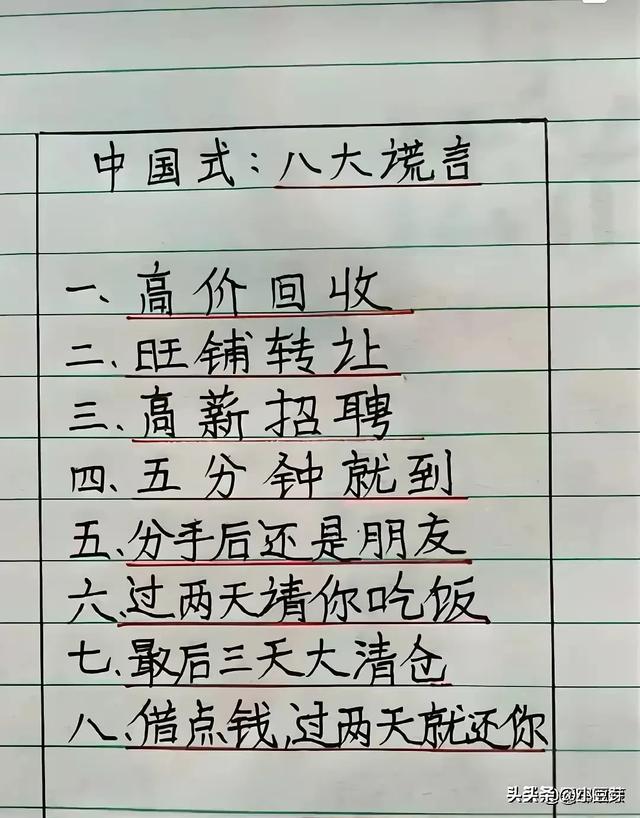 中国式:八大谎言
一、高价回收
二、旺铺转让
三、高薪招聘
四、五分钟就到
五、分手后还是朋友
六、过两天请你吃饭
七、最后三天大清仓
八、借点钱,过两天就还你
头条@小豆芽